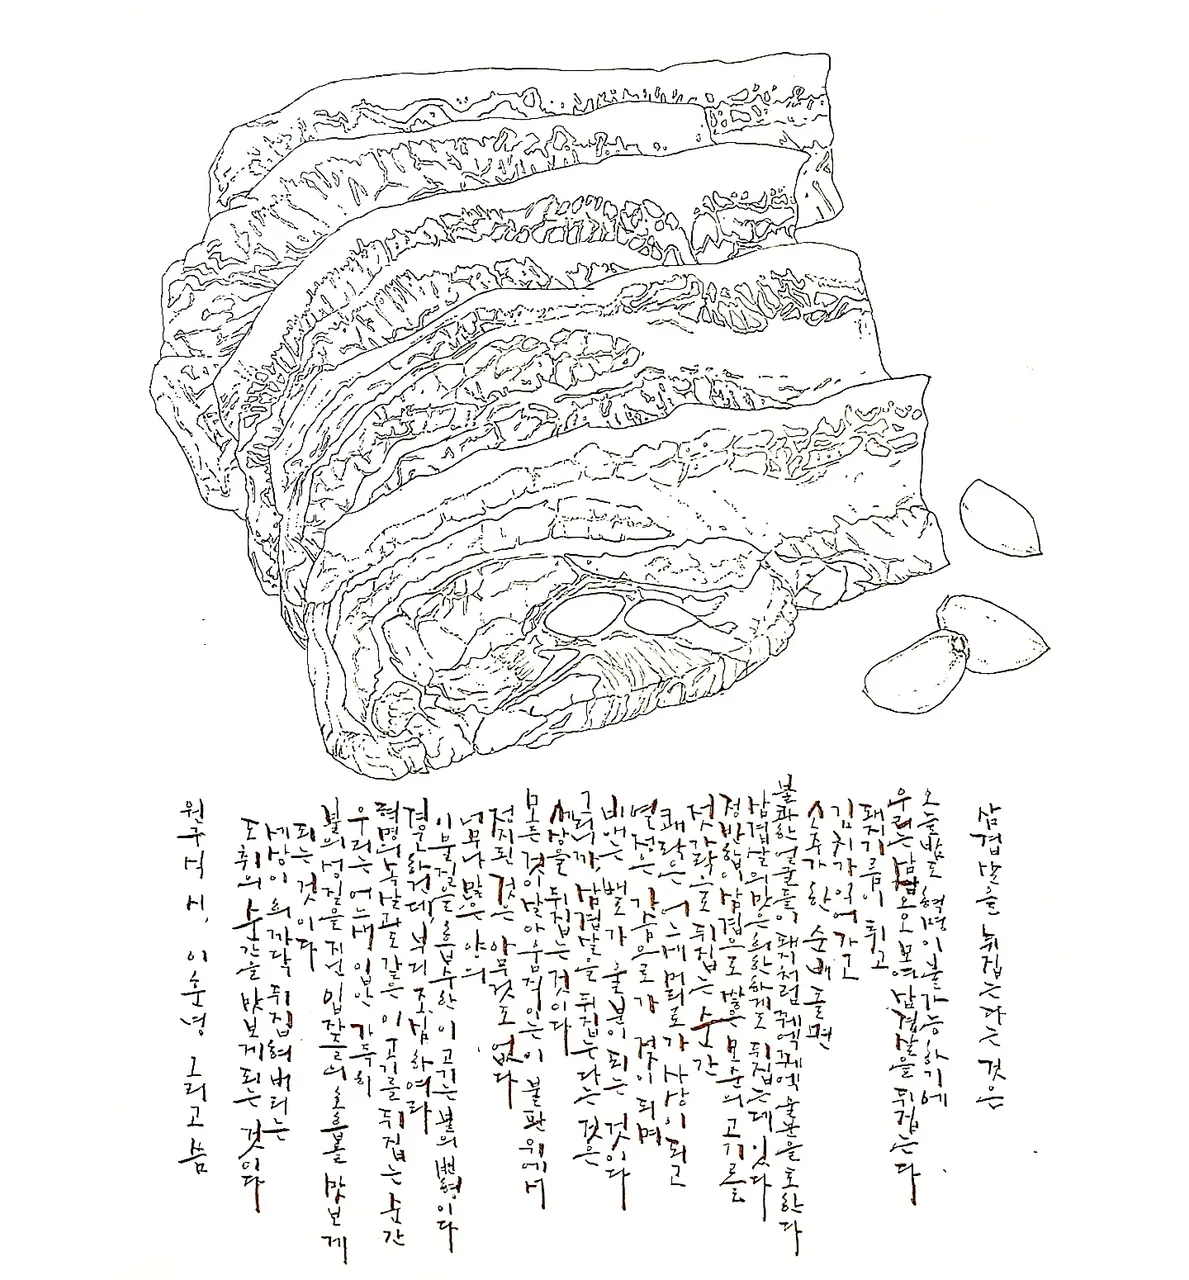 삼겹살을 뒤집는다는 것은
오늘밤도 혁명이 불가능하기에
우리는 삼삼오오 모여 삼겹살을 뒤집는다
돼지기름이 튀고
김치가 익어가고
소주가 한 순배 돌면
불콰한 얼굴들이 돼지처럼 꽥꽥 울분을 토한다
삼겹살의 맛은 희한하게도 뒤집는데 있다
정반합이 삼겹으로 쌓은 모순의 고기를
젓가락으로 뒤집는 순간
쾌락은 어느새 머리로 가 사상이 되고
열정은 가슴으로 가 젖이 되며
비애는 배로 가 울분이 되는 것이다
그러니까, 삼겹살을 뒤집는다는 것은
세상을 뒤집는 것이다
모든 것이 살아 움직이는 이 불판 위에서
정지된 것은 아무것도 없다
너무나 많은 양의
이물질을 흡수한 이 고기는 불의 변형이다
경고하건데, 부디 조심하여라
혁명의 속살과도 같은 이 고기를 뒤집는 순간
우리는 어느새 입안 가득히
불의 성질을 지닌 입자들의 흐름을 맛보게
되는 것이다
세상이 회까닥 뒤집혀 버리는
도취의 순간을 맛보게 되는 것이다
원구식 시, 이순영 그리고 씀